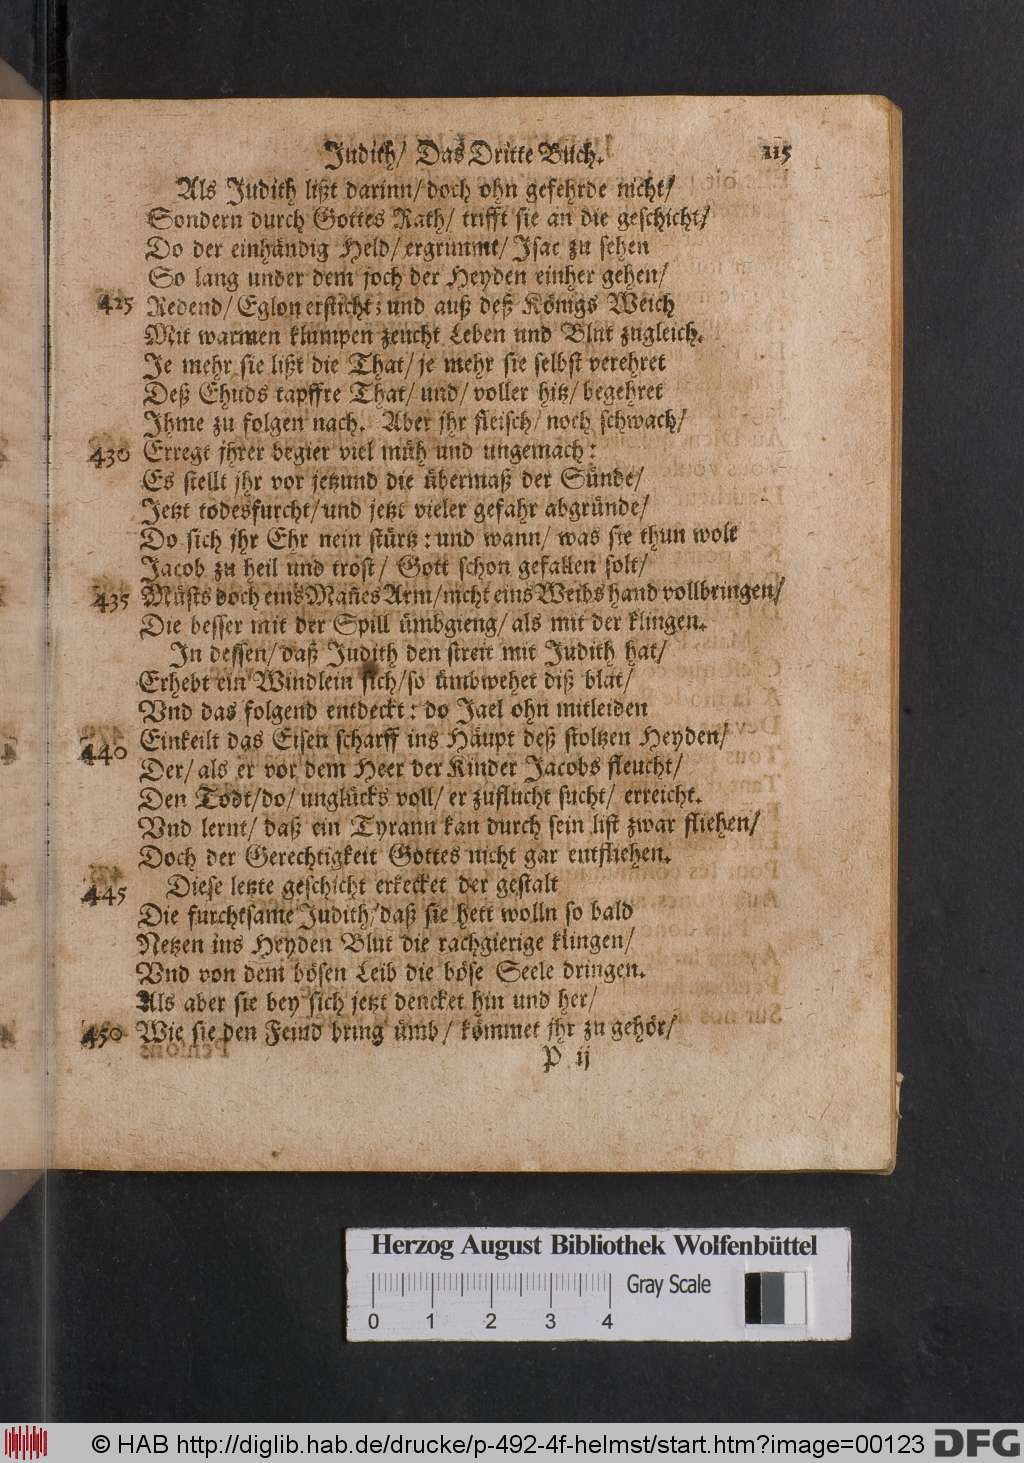 Judith/ Das Dritte Buch. 115
Als Judith lißt darinn/ doch ohn gefehrde nicht/
Sondern durch Gottes Rath/ trifft sie an die geschicht/
Do der einhändig Held/ ergrimmt/ Isac zu sehen
So lang under dem joch der Heyden einher gehen/
425 Redend/ Eglon ersticht; und auß deß Königs Weich
Mit warmen klumpen zeucht Leben und Blut zugleich.
Je mehr sie lißt die That/ je mehr sie selbst verehret
Deß Ehuds tapffre That/ und/ voller hitz/ begehret
Ihme zu folgen nach. Aber jhr fleisch/ noch schwach/
430 Erregt jhrer begier viel müh und ungemach:
Es stellt jhr vor jetzund die übermaß der Sünde/
Jetzt todesfurcht/ und jetzt vieler gefahr abgründe/
Do sich jhr Ehr nein stürtz: und wann/ was sie thun wolt
Jacob zu heil und trost/ Gott schon gefallen solt/
435 Müsts doch eins Mañes Arm/ nicht eins Weibs hand vollbringen/
Die besser mit der Spill ümbgieng/ als mit der klingen.
In dessen/ daß Judith den streit mit Judith hat/
Erhebt ein Windlein sich/ so ümbwehet diß blat/
Vnd das folgend entdeckt: do Jael ohn mitleiden
440 Einkeilt das Eisen scharff ins Häupt deß stoltzen Heyden/
Der/ als er vor dem Heer der Kinder Jacobs fleucht/
Den Todt/ do/ unglücks voll/ er zuflucht sucht/ erreicht.
Vnd lernt/ daß ein Tyrann kan durch sein list zwar fliehen/
Doch der Gerechtigkeit Gottes nicht gar entfliehen.
445 Diese letzte geschicht erkecket der gestalt
Die furchtsame Judith/ daß sie hett wolln so bald
Netzen ins Heyden Blut die rachgierige klingen/
Vnd von dem bösen Leib die böse Seele dringen.
Als aber sie bey sich jetzt dencket hin und her/
450 Wie sie den Feind bring ümb/ kömmet jhr zu gehör/
P ij
Herzog August Bibliothek Wolfenbüttel
Gray Scale
0 1 2 3 4
© HAB http://diglib.hab.de/drucke/p-492-4f-helmst/start.htm?image=00123
DFG